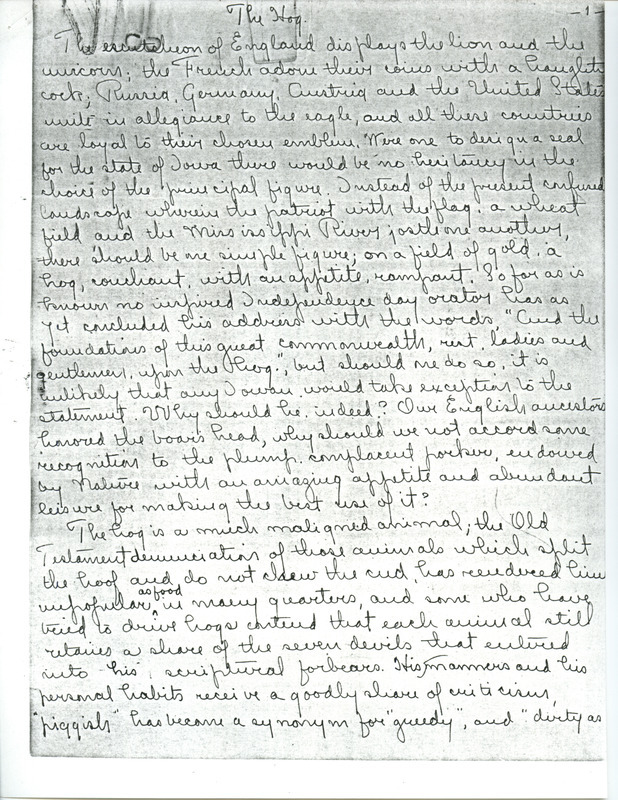 The Hog. -1-
The escutcheon of England displays the lion and the
unicorn; the French adorn their coins with a haughty
cock; Russia, Germany, Austria and the United States
unite in allegiance to the eagle, and all these countries
are loyal to their chosen emblem. Were one to design a seal
for the state of Iowa there would be no hesitancy in the
choice of the principal figure. Instead of the present confused
landscape wherein the patriot with the flag, a wheat
field and the Mississippi River jostle one another,
there should be one simple figure; on a field of gold, a
hog, couchant, with an appetite, rampant. So far as is
known no inspired Independence day orator has as
yet concluded his address with the words, "And the
foundations of this great commonwealth, rest, ladies and
gentlemen, upon the hog.", but should one do so, it is
unlikely that any Iowan would take exception to the
statement. Why should he, indeed? Our English ancestors
honored the boars head, why should we not accord some
recognition to the plump, complacent porker, endowed
by Nature with an amazing appetite and abundant
leisure for making the best use of it?
The hog is a much maligned animal; the Old
Testament denunciation of those animals which split
the hoof and do not chew the cud, has rendered him
unpopular, as food in many quarters, and some who have
tried to drive hogs contend that each animal still
retains a share of the seven devils that entered
into his scriptural forbears. His manners and his
personal habits receive a goodly share of criticism,
"piggish" has become a synonym for "greedy", and "dirty as